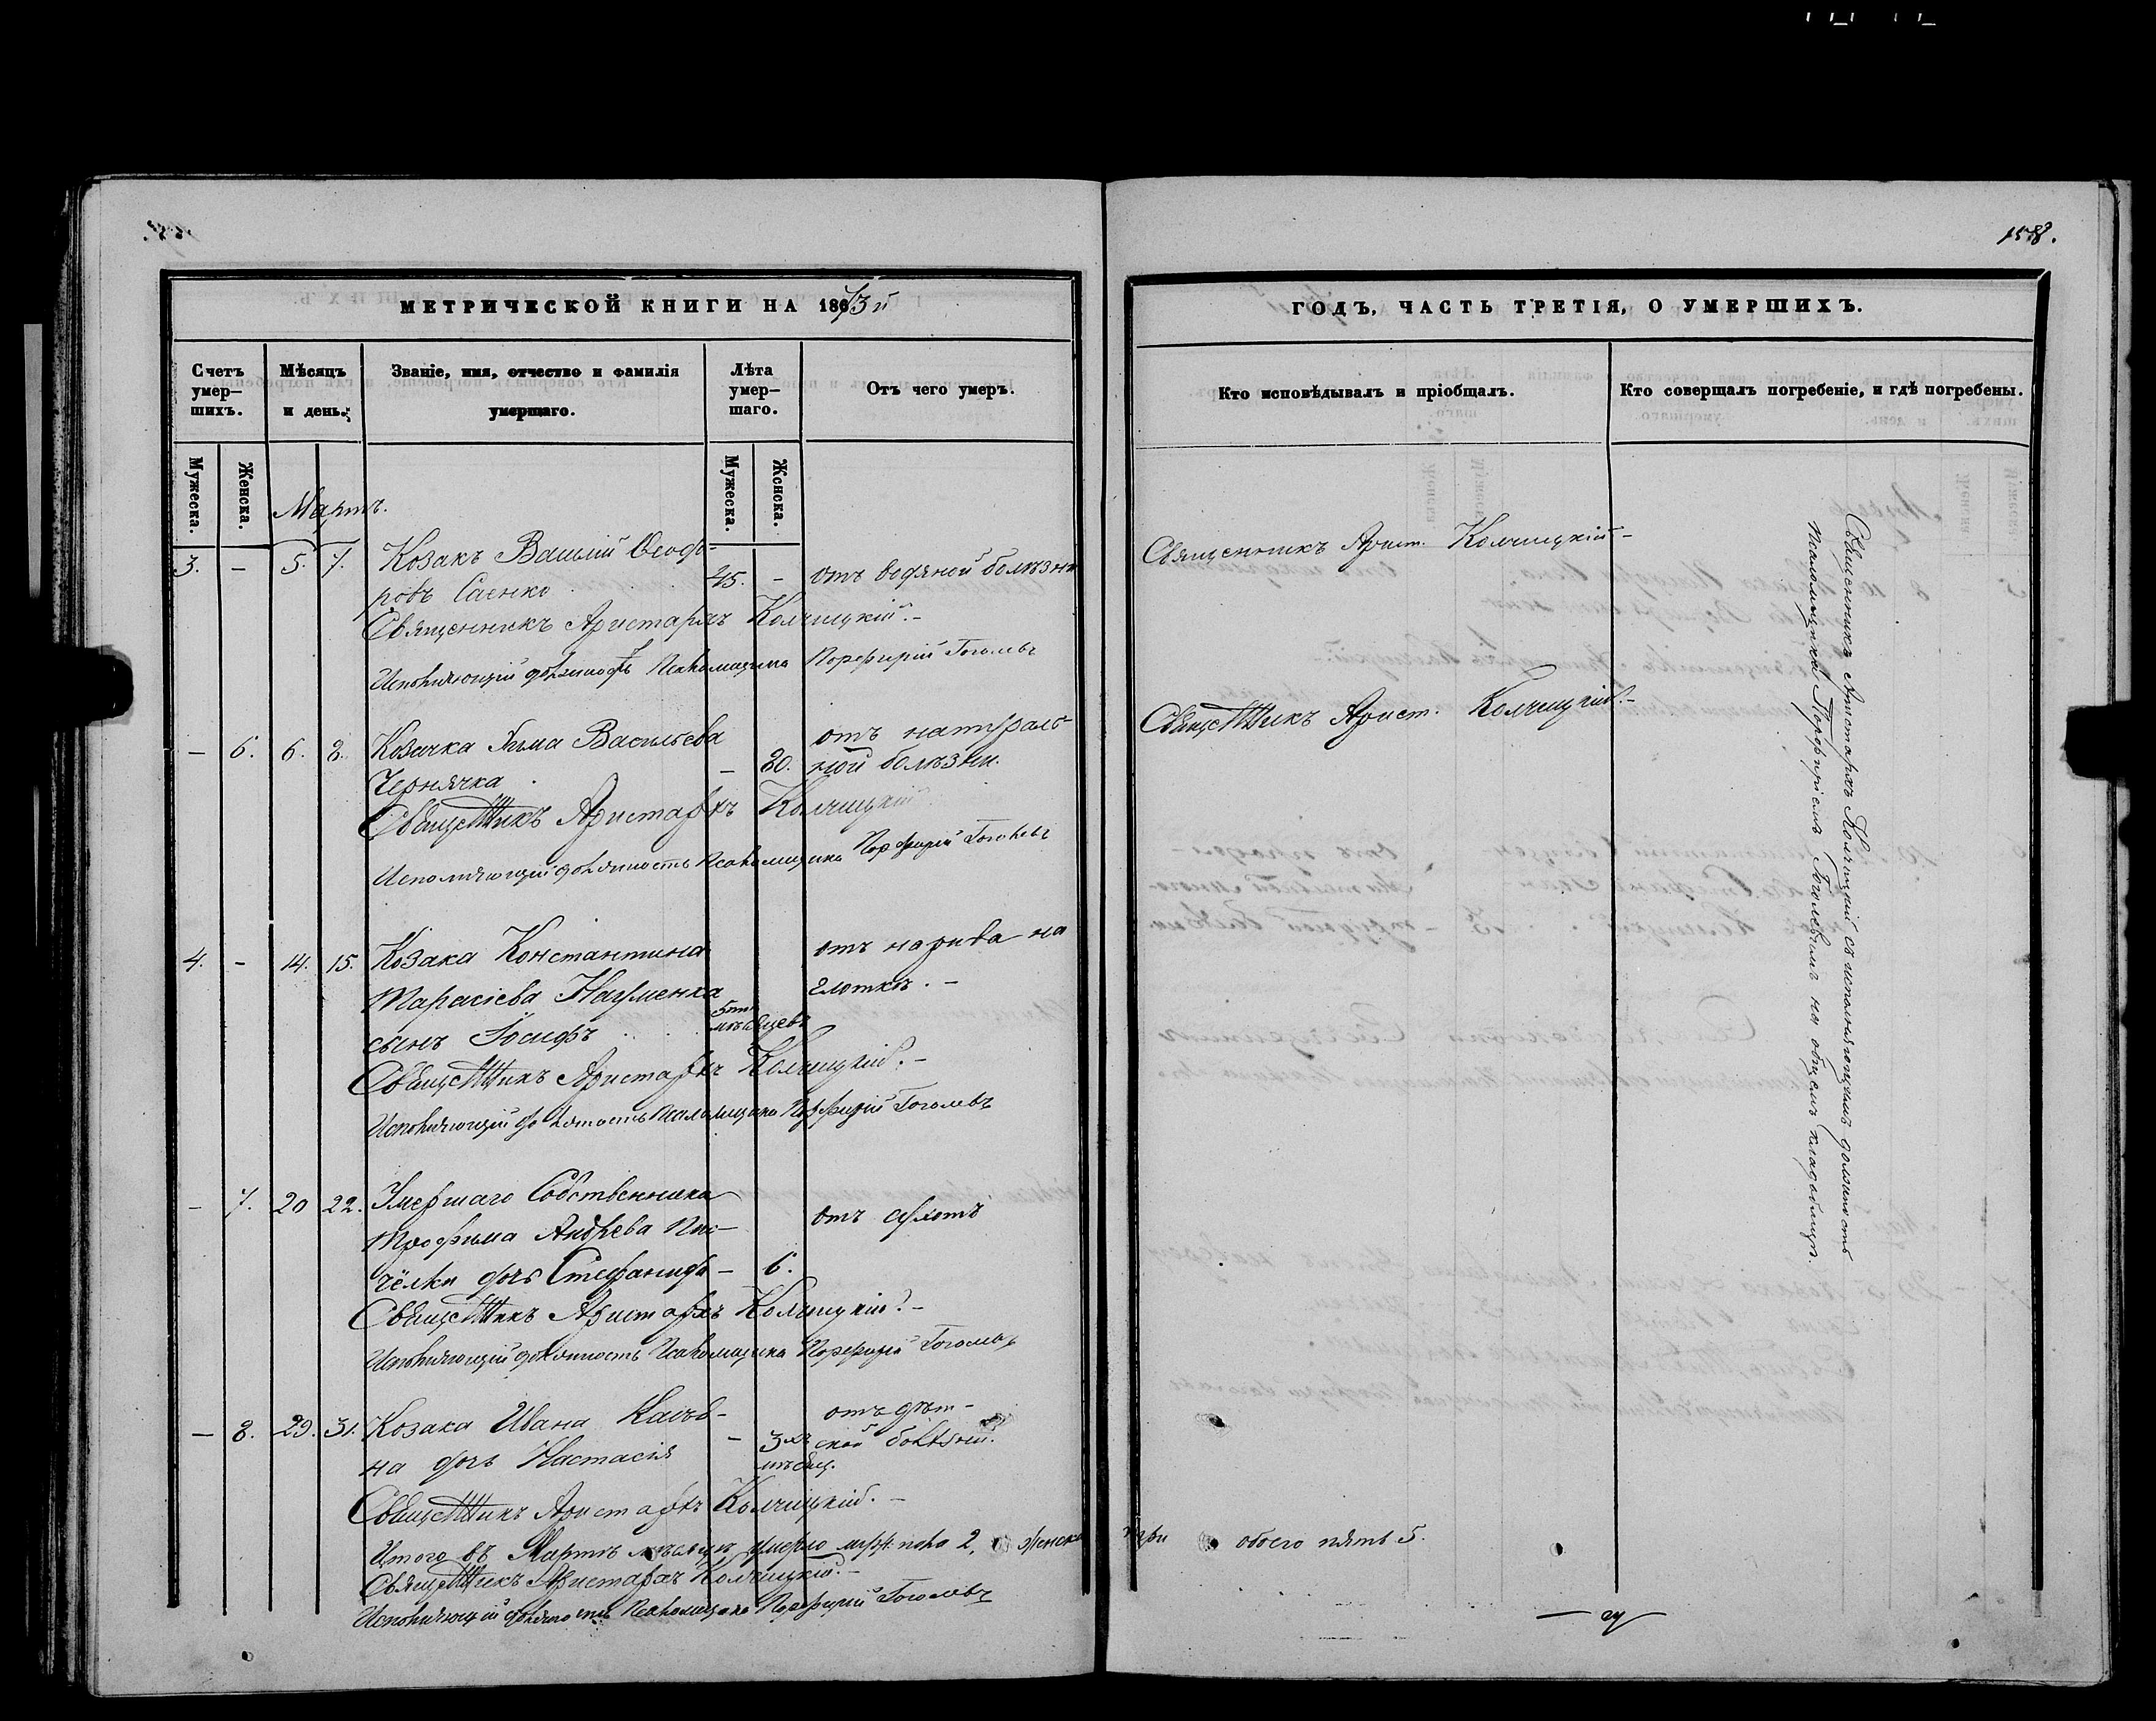 158.
МЕТРИЧЕСКОЙ КНИГИ НА 1873й
Счетъ умер-шихъ.
Мѣсяцъ и день.
Званіе, имя, отчество и фамилія умершаго.
Лѣта умер-шаго.
Отъ чего умеръ.
Мужеска.
Женска.
Мужеска.
Женска.
Мартъ.
3. - 5. 7. Козакъ Василій Ѳеодо-
ровъ Саенко 45. - отъ водяной болѣзни
Священникъ Аристархъ Колчицкій.-
Исполняющій должность Псаломщика Порфирій Гоголевъ
- 6. 6. 8. Козачка Васильева отъ натураль-
Чернячка - 80. ной болѣзни.
Священникъ Аристархъ Колчицкій
Исполняющій должность Псаломщика Порфирій Гоголевъ
4. - 14. 15. Козака Константина отъ нарыва на
Тарасіева Науменка глоткѣ.-
сынъ Іосифъ 5ти мѣсяцевъ
Священникъ Аристархъ Колчицкій.-
Исполняющій должность Псаломщика Порфирій Гоголевъ
- 7. 20 22. Умершаго Собственника
Трофима Андреева Пи- отъ сухотъ
чёлки дочь Стефанида - 6.
Священникъ Аристархъ Колчицкій.-
Исполняющій должность Псаломщика Порфирій Гоголевъ
- 8. 29. 31. Козака Ивана отъ дѣт-
на дочь Настасія - 3хъ мѣсяц. ской болѣзни.
Священникъ Аристархъ Колчицкій.-
Итого въ Мартѣ мѣсяцѣ умерло муж: пола 2, женска три обоего пять 5.
Священникъ Аристархъ Колчицкій.-
Исполняющій должность Псаломщика Порфирій Гоголевъ
ГОДЪ, ЧАСТЬ ТРЕТІЯ, О УМЕРШИХЪ.
Кто исповѣдывалъ и пріобщалъ.
Кто совершалъ погребеніе, и гдѣ погребены.
Священникъ Арист. Колчицкій-
Священникъ Арист. Колчицкій.-
Священникъ Аристархъ Колчицкій съ исполняющимъ должность
Псаломщика Порфиріемъ Гоголевымъ на общемъ кладбищѣ.